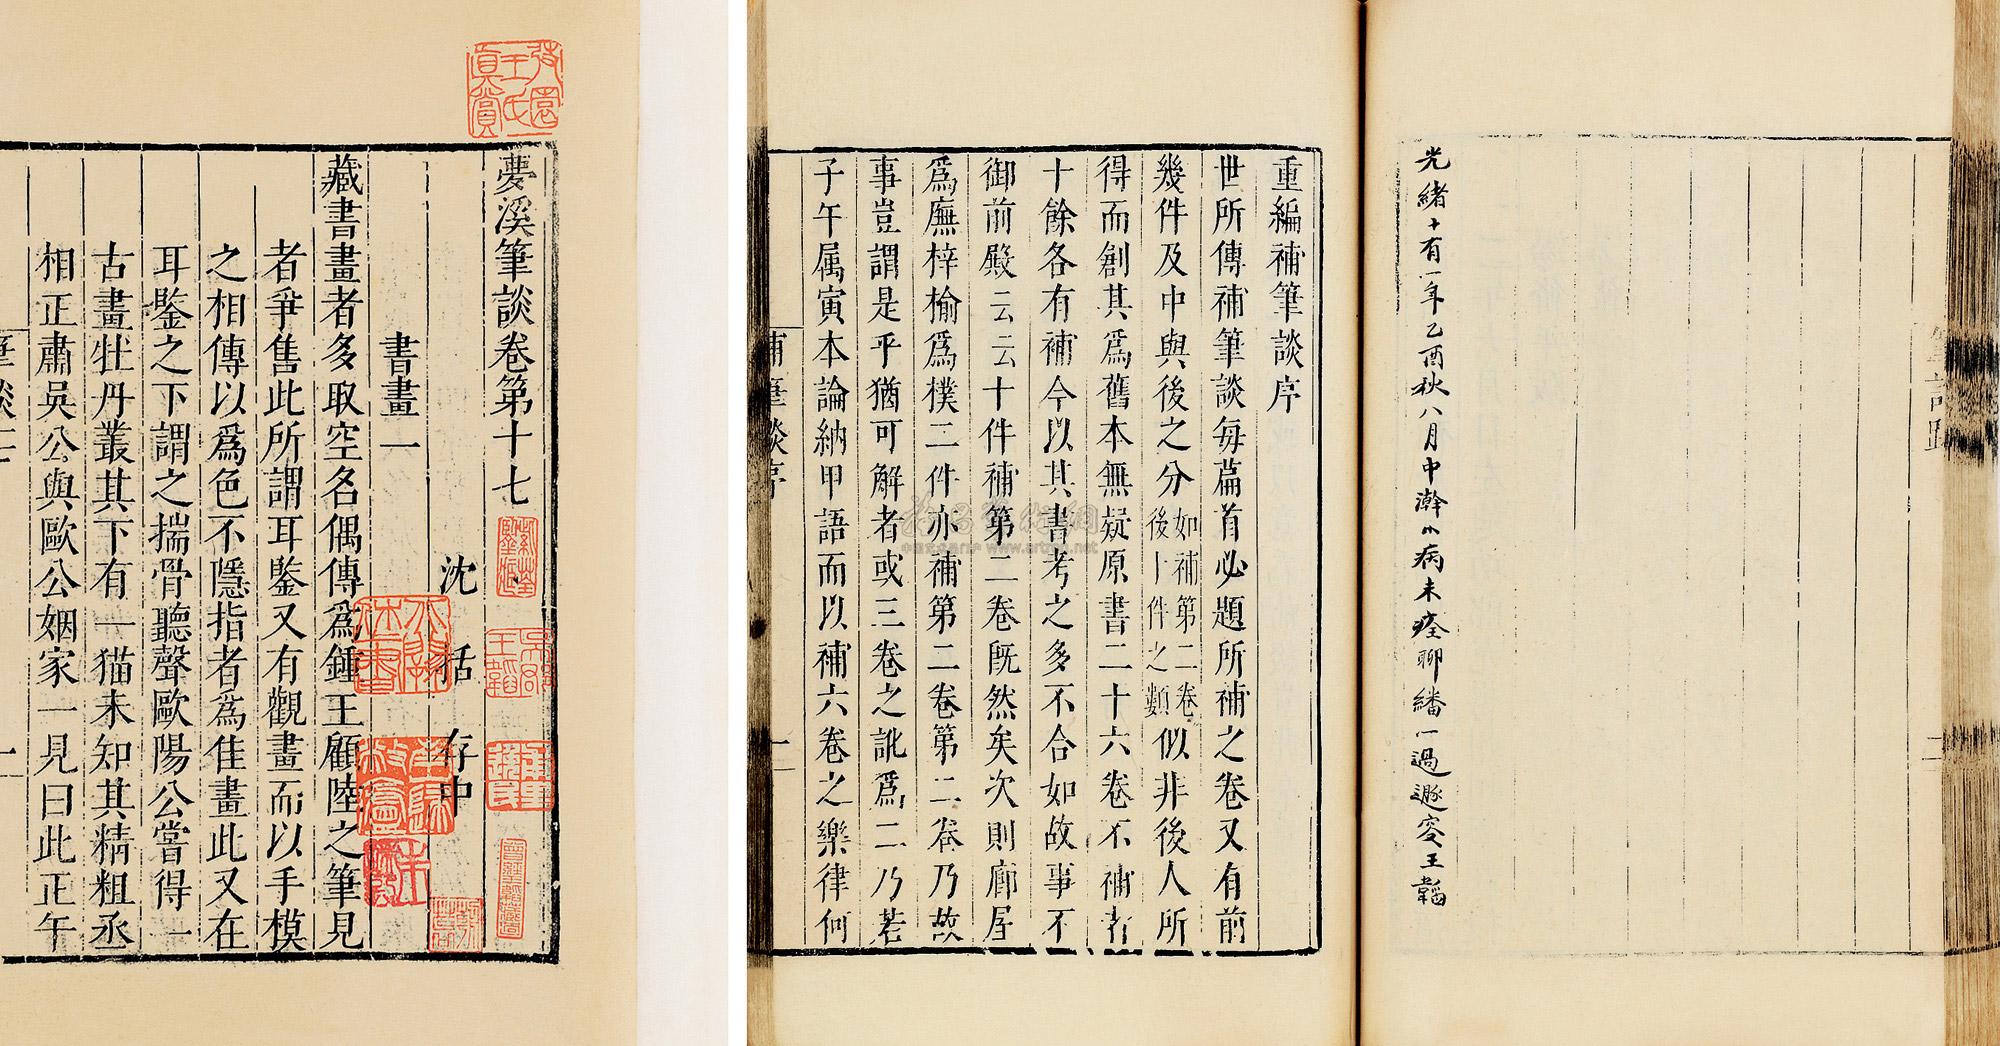 夢溪筆談卷第十七
沈括存中
書畫一
藏書畫者多取空名偶傳爲鍾王顧陸之筆見
者爭售此所謂耳鑒又有觀畫而以手摸
之相傳以爲色不隱指者爲佳畫此又在
耳鑒之下謂之揣骨聽聲歐陽公嘗得一
古畫牡丹叢其下有一猫未知其精粗丞
相正肅吳公與歐公姻家一見曰此正午
筆談十七
一
光緒十有一年乙酉秋八月中澣小病未痊聊繙一過遯窔王韜
重編補筆談序
世所傳補筆談每篇首必題所補之卷又有前
幾件及中與後之分如補第二卷後十件之類似非後人所
得而創其爲舊本無疑原書二十六卷不補者
十餘各有補今以其書考之多不合如故事不
御前殿云云十件補第二卷旣然矣次則廊屋
爲廡梓榆爲樸二件亦補第二卷第二卷乃故
事豈謂是乎猶可解者或三卷之訛爲二乃若
子午属寅本論納甲語而以補六卷之樂律何
補筆談序
一